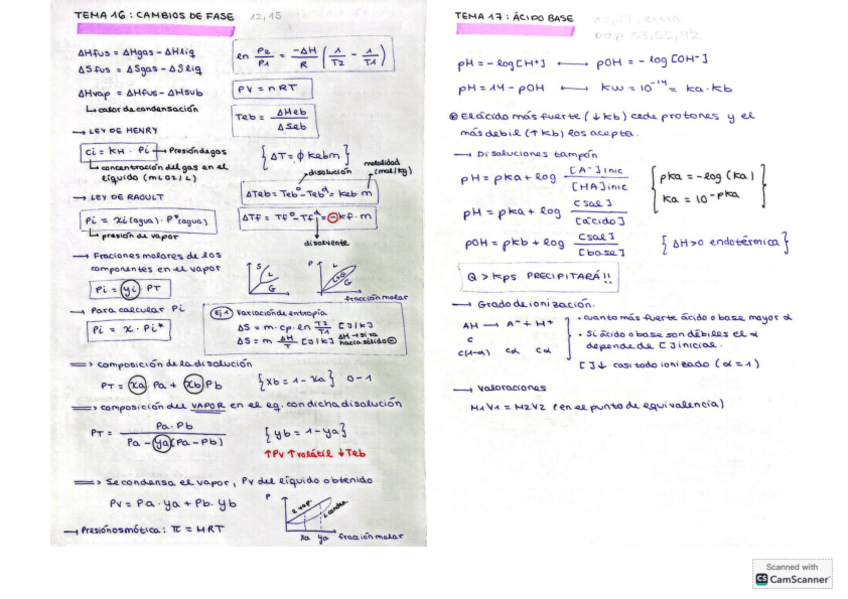 TEMA 16: CAMBIOS DE FASE 12,15
ΔHfus = ΔHgas - ΔHliq
ΔSfus = ΔSgas - ΔSliq
ΔHvap = ΔHfus - ΔHsub
↳ calor de condensación
ln P2/P1 = -ΔH/R (1/T2 - 1/T1)
PV = nRT
Teb = ΔHeb/ΔSeb
→ LEY DE HENRY
Ci = KH · Pi → Presión de gas
↳ concentración del gas en el
líquido (mLO2/L)
{ΔT = ϕ Kebm}
disolución
molalidad
(mol/kg)
ΔTeb = Teb° - Teb° = Keb·m
ΔTf = Tf° - Tf° = -Kf·m
disolvente
→ LEY DE RAOULT
Pi = xi(agua) · P*(agua)
↳ presión de vapor
→ Fraciones molares de los
componentes en el vapor
Pi = yi PT
S L G
P L L+G G
fracción molar
→ Para calcular Pi
Pi = x · Pi*
Ej Variación de entropía
ΔS = m · cp · ln T2/T1 [J/K]
ΔS = m ΔH/T [J/K] ΔH → si va hacia sólido ⊖
⇒ composición de la disolución
PT = xa · Pa + xb Pb {xb = 1 - xa} 0-1
⇒ composición del VAPOR en el eq. con dicha disolución
PT = Pa·Pb / Pa - ya(Pa - Pb) {yb = 1 - ya}
↑Pv ↑volátil ↓Teb
⇒ Se condensa el vapor, Pv del líquido obtenido
Pv = Pa · ya + Pb · yb
P
xa ya fracción molar
→ Presión osmótica: π = MRT
TEMA 17: ÁCIDO BASE
pH = -log[H+] ⟷ pOH = -log[OH-]
pH = 14 - pOH ⟵ Kw = 10^-14 = Ka · Kb
El ácido más fuerte (↓Kb) cede protones y el
más debil (↑Kb) los acepta.
→ Disoluciones tampón
pH = pKa + log [A-]inic/[HA]inic
{pKa = -log(Ka)
Ka = 10^-pKa}
pH = pKa + log [sal]/[ácido]
pOH = pKb + log [sal]/[base] {ΔH>0 endotérmica}
Q > Kps PRECIPITARÁ!!
→ Grado de ionización.
AH → A- + H+
C
C(1-α) Cα Cα
· cuanto más fuerte ácido o base mayor α
· Si ácido o base son débiles el α
depende de [ ]inicial.
[ ]↓ casi todo ionizado (α = 1)
→ Valoraciones
M1V1 = M2V2 (en el punto de equivalencia)
Scanned with
CS CamScanner